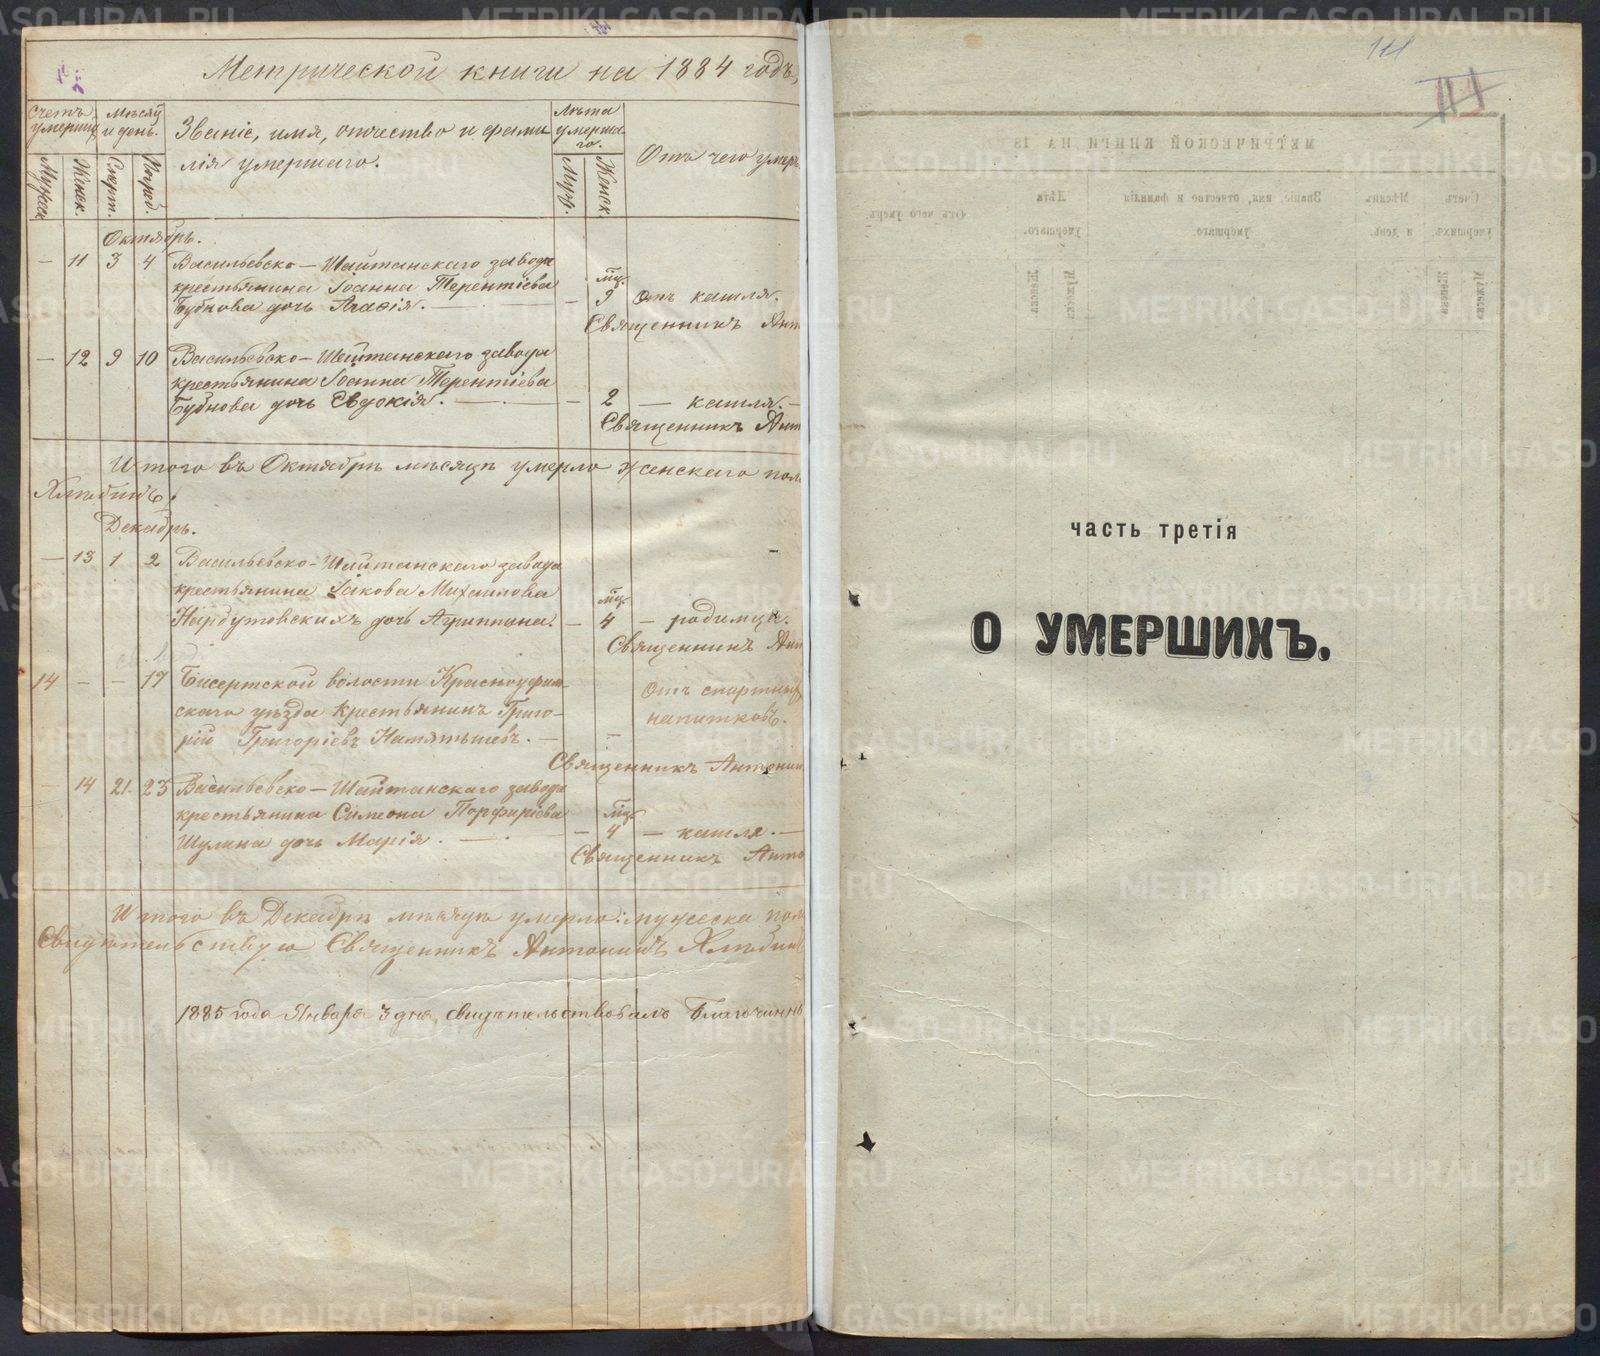 Метрической книги на 1884 годъ,
Счетъ умершихъ
Мѣсяцъ и день.
Званіе, имя, отчество и фами-
лія умершаго.
Лѣта умерша-
го.
Отъ чего умеръ
Мужск.
Женск.
Смерт.
Погреб.
Муж.
Женск.
Октябрь.
— 11 3 4 Васильевско-Шайтанскаго завода
крестьянина Іоанна Терентіева
мц.
Бубнова дочь Агафія. — 9 Отъ кашля.
Священникъ Ант
— 12 9 10 Васильевско-Шайтанскаго завода
крестьянина Іоанна Терентіева
Бубнова дочь Евдокія. — 2 — кашля. —
Священникъ Ант
Итого въ Октябрѣ мѣсяцѣ умерло женскаго пол
Хлѣбинъ.
Декабрь.
— 13 1 2 Васильевско-Шайтанскаго завода
крестьянина Іакова Михаилова
мц.
Нарбутовскихъ дочь Агриппина. — 4 — родимца.
Священникъ Ант
14 — — 17 Бисертской волости Красноуфим-
скаго уѣзда крестьянинъ Григо-
рій Григоріевъ —
Отъ спиртныхъ
напитковъ.
Священникъ Антонин
— 14 21. 23 Васильевско-Шайтанскаго завода
крестьянина Симеона Порфиріева
мц.
Шулина дочь Марія. — 4 — кашля. —
Священникъ Анто
Итого въ Декабрѣ мѣсяцѣ умерло: мужеска пол
Свидѣтельствую Священникъ Антонинъ Хлѣбин
1885 года Января 3 дня, свидѣтельствовалъ Благочинн
111
МЕТРИЧЕСКОЙ КНИГИ НА 18
Счетъ умершихъ.
Мѣсяцъ и день.
Званіе, имя, отчество и фамилія умершаго.
Лѣта умершаго.
Отъ чего умеръ.
Мужеска
Женска
Мужеска
Женска
ЧАСТЬ ТРЕТІЯ
О УМЕРШИХЪ.
METRIKI.GASO-URAL.RU